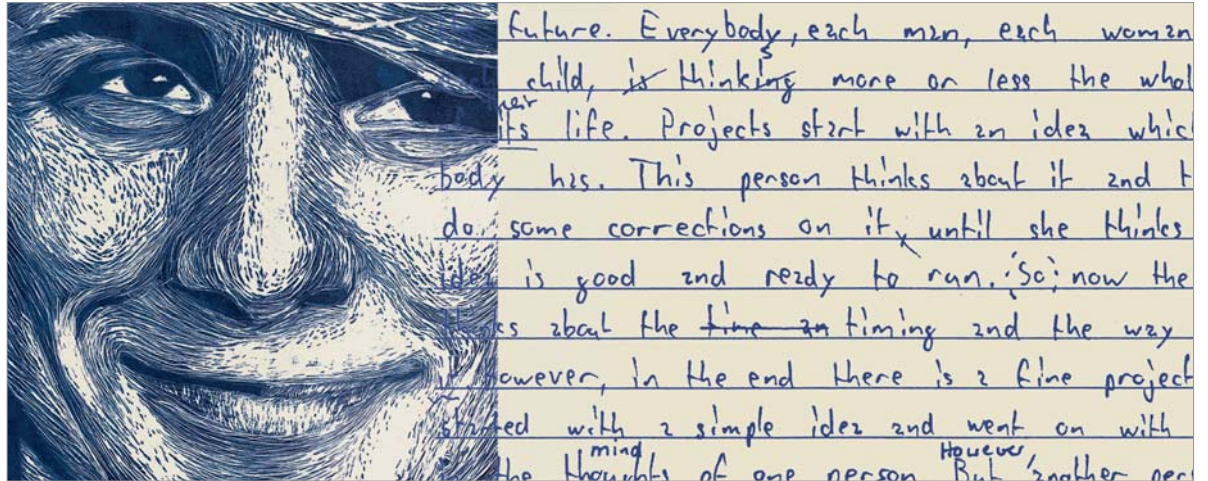 future. Everybody, each man, each woman
s
child, is thinking more or less the whol
its life. Projects start with an idea whic
body has. This person thinks about it and t
do some corrections on it, until she thinks
idea is good and ready to run. So, now the
thinks about the time an timing and the way
however, in the end there is a fine project
started with a simple idea and went on with
mind However,
the thoughts of one person. But another per